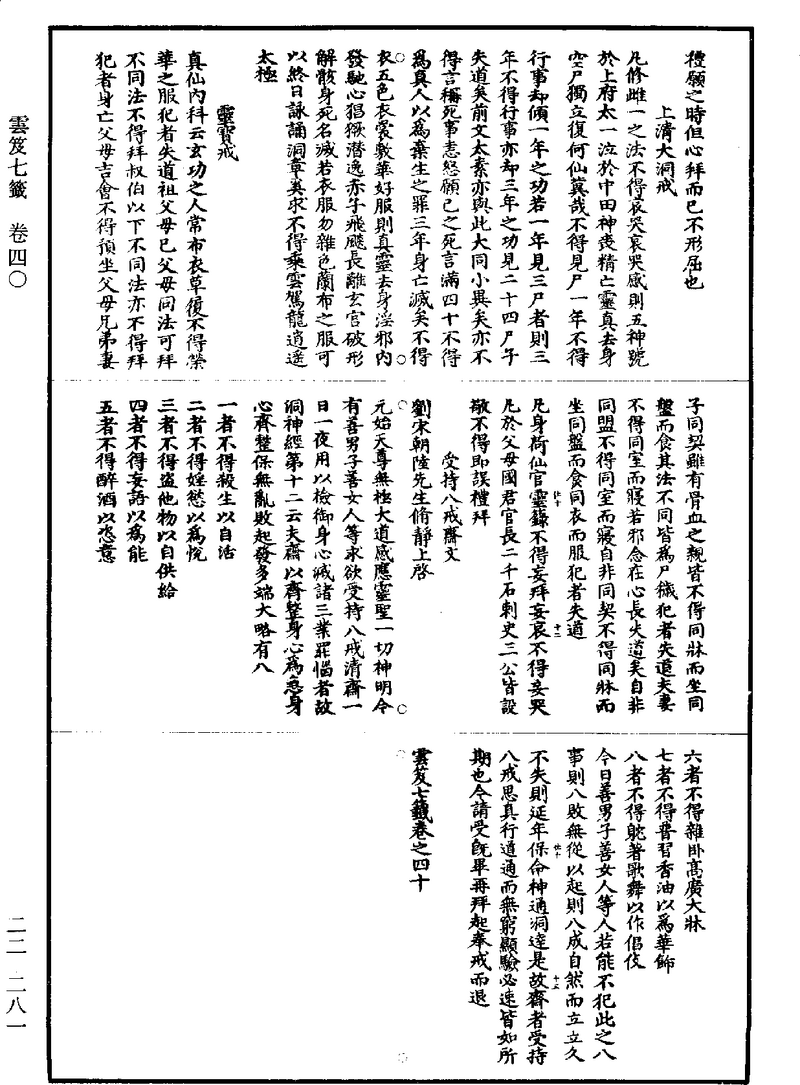 禮願之時但心拜而已不形屈也
上清大洞戒
凡修雌一之法不得哀哭哀哭感則五神號
於上府太一泣於中田神喪精亡靈真去身
空尸獨立復何仙冀哉不得見尸一年不得
行事却傾一年之功若一年見三尸者則三
年不得行事亦却三年之功見二十四尸子
失道矣前文太素亦與此大同小異矣亦不
得言稱死事恚怒願己之死言滿四十不得
為真人以為棄生之罪三年身亡滅矣不得
衣五色衣裳敷華好服則真靈去身淫邪內
發馳心猖獗潛逸赤子飛飈長離玄宮破形
解骸身死名滅若衣服勿雜色蘭布之服可
以終日詠誦洞章奚求不得乘雲駕龍逍遥
太極
靈寶戒
真仙內科云玄功之人常布衣草履不得榮
華之服犯者失道祖父母已父母同法可拜
不同法不得拜叔伯以下不同法亦不得拜
犯者身亡父母吉會不得預坐父母兄弟妻
子同契雖有骨血之親皆不得同牀而坐同
盤而食其法不同皆為尸穢犯者失道夫妻
不得同室而寢若邪念在心長失道矣自非
同盟不得同室而寢自非同契不得同牀而
坐同盤而食同衣而服犯者失道
凡身荷仙官靈籙不得妄拜妄哀不得妄哭
凡於父母國君官長二千石刺史三公皆設
敬不得即誤禮拜
受持八戒齋文
劉宋朝陸先生脩靜上啓
元始天尊無極大道感應靈聖一切神明今
有善男子善女人等求欲受持八戒清齋一
日一夜用以檢御身心滅諸三業罪惱者故
洞神經第十二云夫齋以齊整身心為急身
心齊整保無亂敗起發多端大略有八
一者不得殺生以自活
二者不得婬慾以為悅
三者不得盜他物以自供給
四者不得妄語以為能
五者不得醉酒以恣意
六者不得雜卧高廣大牀
七者不得普習香油以為華飾
八者不得躭著歌舞以作倡伎
今日善男子善女人等人若能不犯此之八
事則八敗無從以起則八成自然而立立久
不失則延年保命神通洞達是故齋者受持
八戒思真行道通而無窮顯驗必速皆如所
期也今請受既畢再拜起奉戒而退
雲笈七籤卷之四十
雲笈七籤　卷四〇
二二 二八一